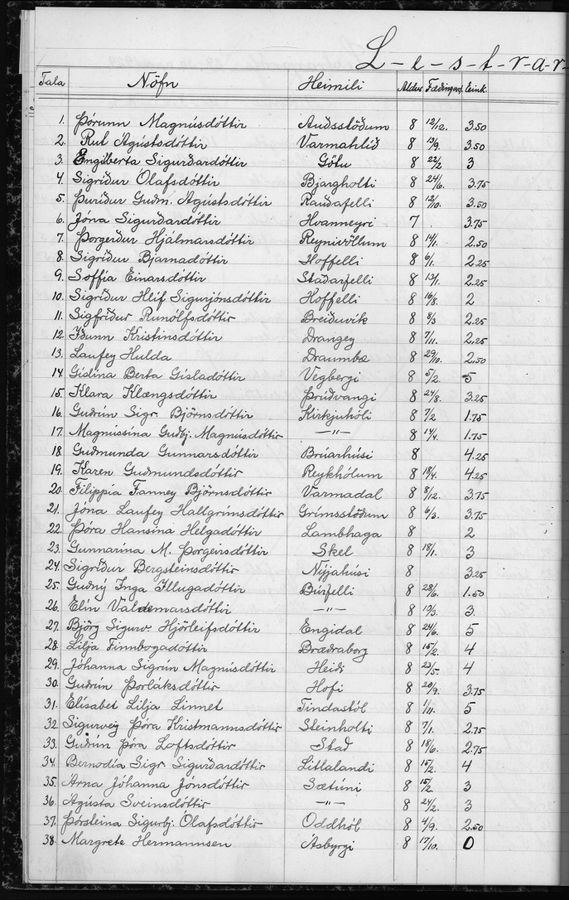 L-e-s-t-r-a-r-
Tala Nöfn Heimili Aldur Fæðingard. Eink.
1. Þórunn Magnúsdóttir Auðsstöðum 8 12/12. 3.50
2. Rut Ágústsdóttir Varmahlíð 8 13/9. 3.50
3. Engilberta Sigurðardóttir Götu 8 22/2 3
4. Sigríður Ólafsdóttir Bjargholti 8 24/6. 3.75
5. Þuríður Guðm. Ágústsdóttir Rauðafelli 8 12/10. 3.50
6. Jóna Sigurðardóttir Hvanneyri 7 3.75
7. Þorgerður Hjálmarsdóttir Reynivöllum 8 14/1. 2.50
8. Sigríður Bjarnadóttir Hoffelli 8 6/1. 2.25
9. Soffía Einarsdóttir Staðarfelli 8 13/1. 2.25
10. Sigríður Hlíf Sigurjónsdóttir Hoffelli 8 16/8. 2
11. Sigfríður Runólfsdóttir Breiðuvík 8 8/3 2.25
12. Iðunn Kristinsdóttir Drangey 8 7/11. 2.25
13. Laufey Hulda Draumbæ 8 29/10. 2.50
14. Gíslína Berta Gísladóttir Vegbergi 8 5/2. 5
15. Klara Klængsdóttir Þrúðvangi 8 24/8. 3.25
16. Guðrún Sigr. Björnsdóttir Kirkjuhóli 8 7/2 1.75
17. Magnússína Guðbj. Magnúsdóttir -"- 8 14/4. 1.75
18. Guðmunda Gunnarsdóttir Brúarhúsi 8 4.25
19. Karen Guðmundsdóttir Reykhólum 8 18/4. 4.25
20. Filippía Fanney Björnsdóttir Varmadal 8 8/12. 3.75
21. Jóna Laufey Hallgrímsdóttir Grímsstöðum 8 6/3. 3.75
22. Þóra Hansína Helgadóttir Lambhaga 8 2
23. Gunnarína M. Þorgeirsdóttir Skel 8 18/1. 3
24. Sigríður Bergsteinsdóttir Nýjahúsi 8 3.25
25. Guðný Inga Illugadóttir Búrfelli 8 28/6. 1.50
26. Elín Valdemarsdóttir -"- 8 19/3. 3
27. Björg Sigurv Hjörleifsdóttir Engidal 8 24/6. 5
28. Lilja Finnbogadóttir Bræðraborg 8 15/2. 4
29. Jóhanna Sigrún Magnúsdóttir Heiði 8 23/5. 4
30. Guðrún Þorláksdóttir Hofi 8 20/9. 3.75
31. Elísabet Lilja Linnet Tindastól 8 1/11. 5
32. Sigurveig Þóra Kristmannsdóttir Steinholti 8 7/1. 2.75
33. Guðrún Þóra Loftsdóttir Stað 8 18/6. 2.75
34. Bernodía Sigr. Sigurðardóttir Litlalandi 8 15/2. 4
35. Arna Jóhanna Jónsdóttir Sætúni 8 15/2. 3
36. Ágústa Sveinsdóttir -"- 8 24/2. 3
37. Þórsteina Sigurbj. Ólafsdóttir Oddhól 8 4/9. 2.50
38. Margrete Hermannsen Ásbyrgi 8 17/10. 0